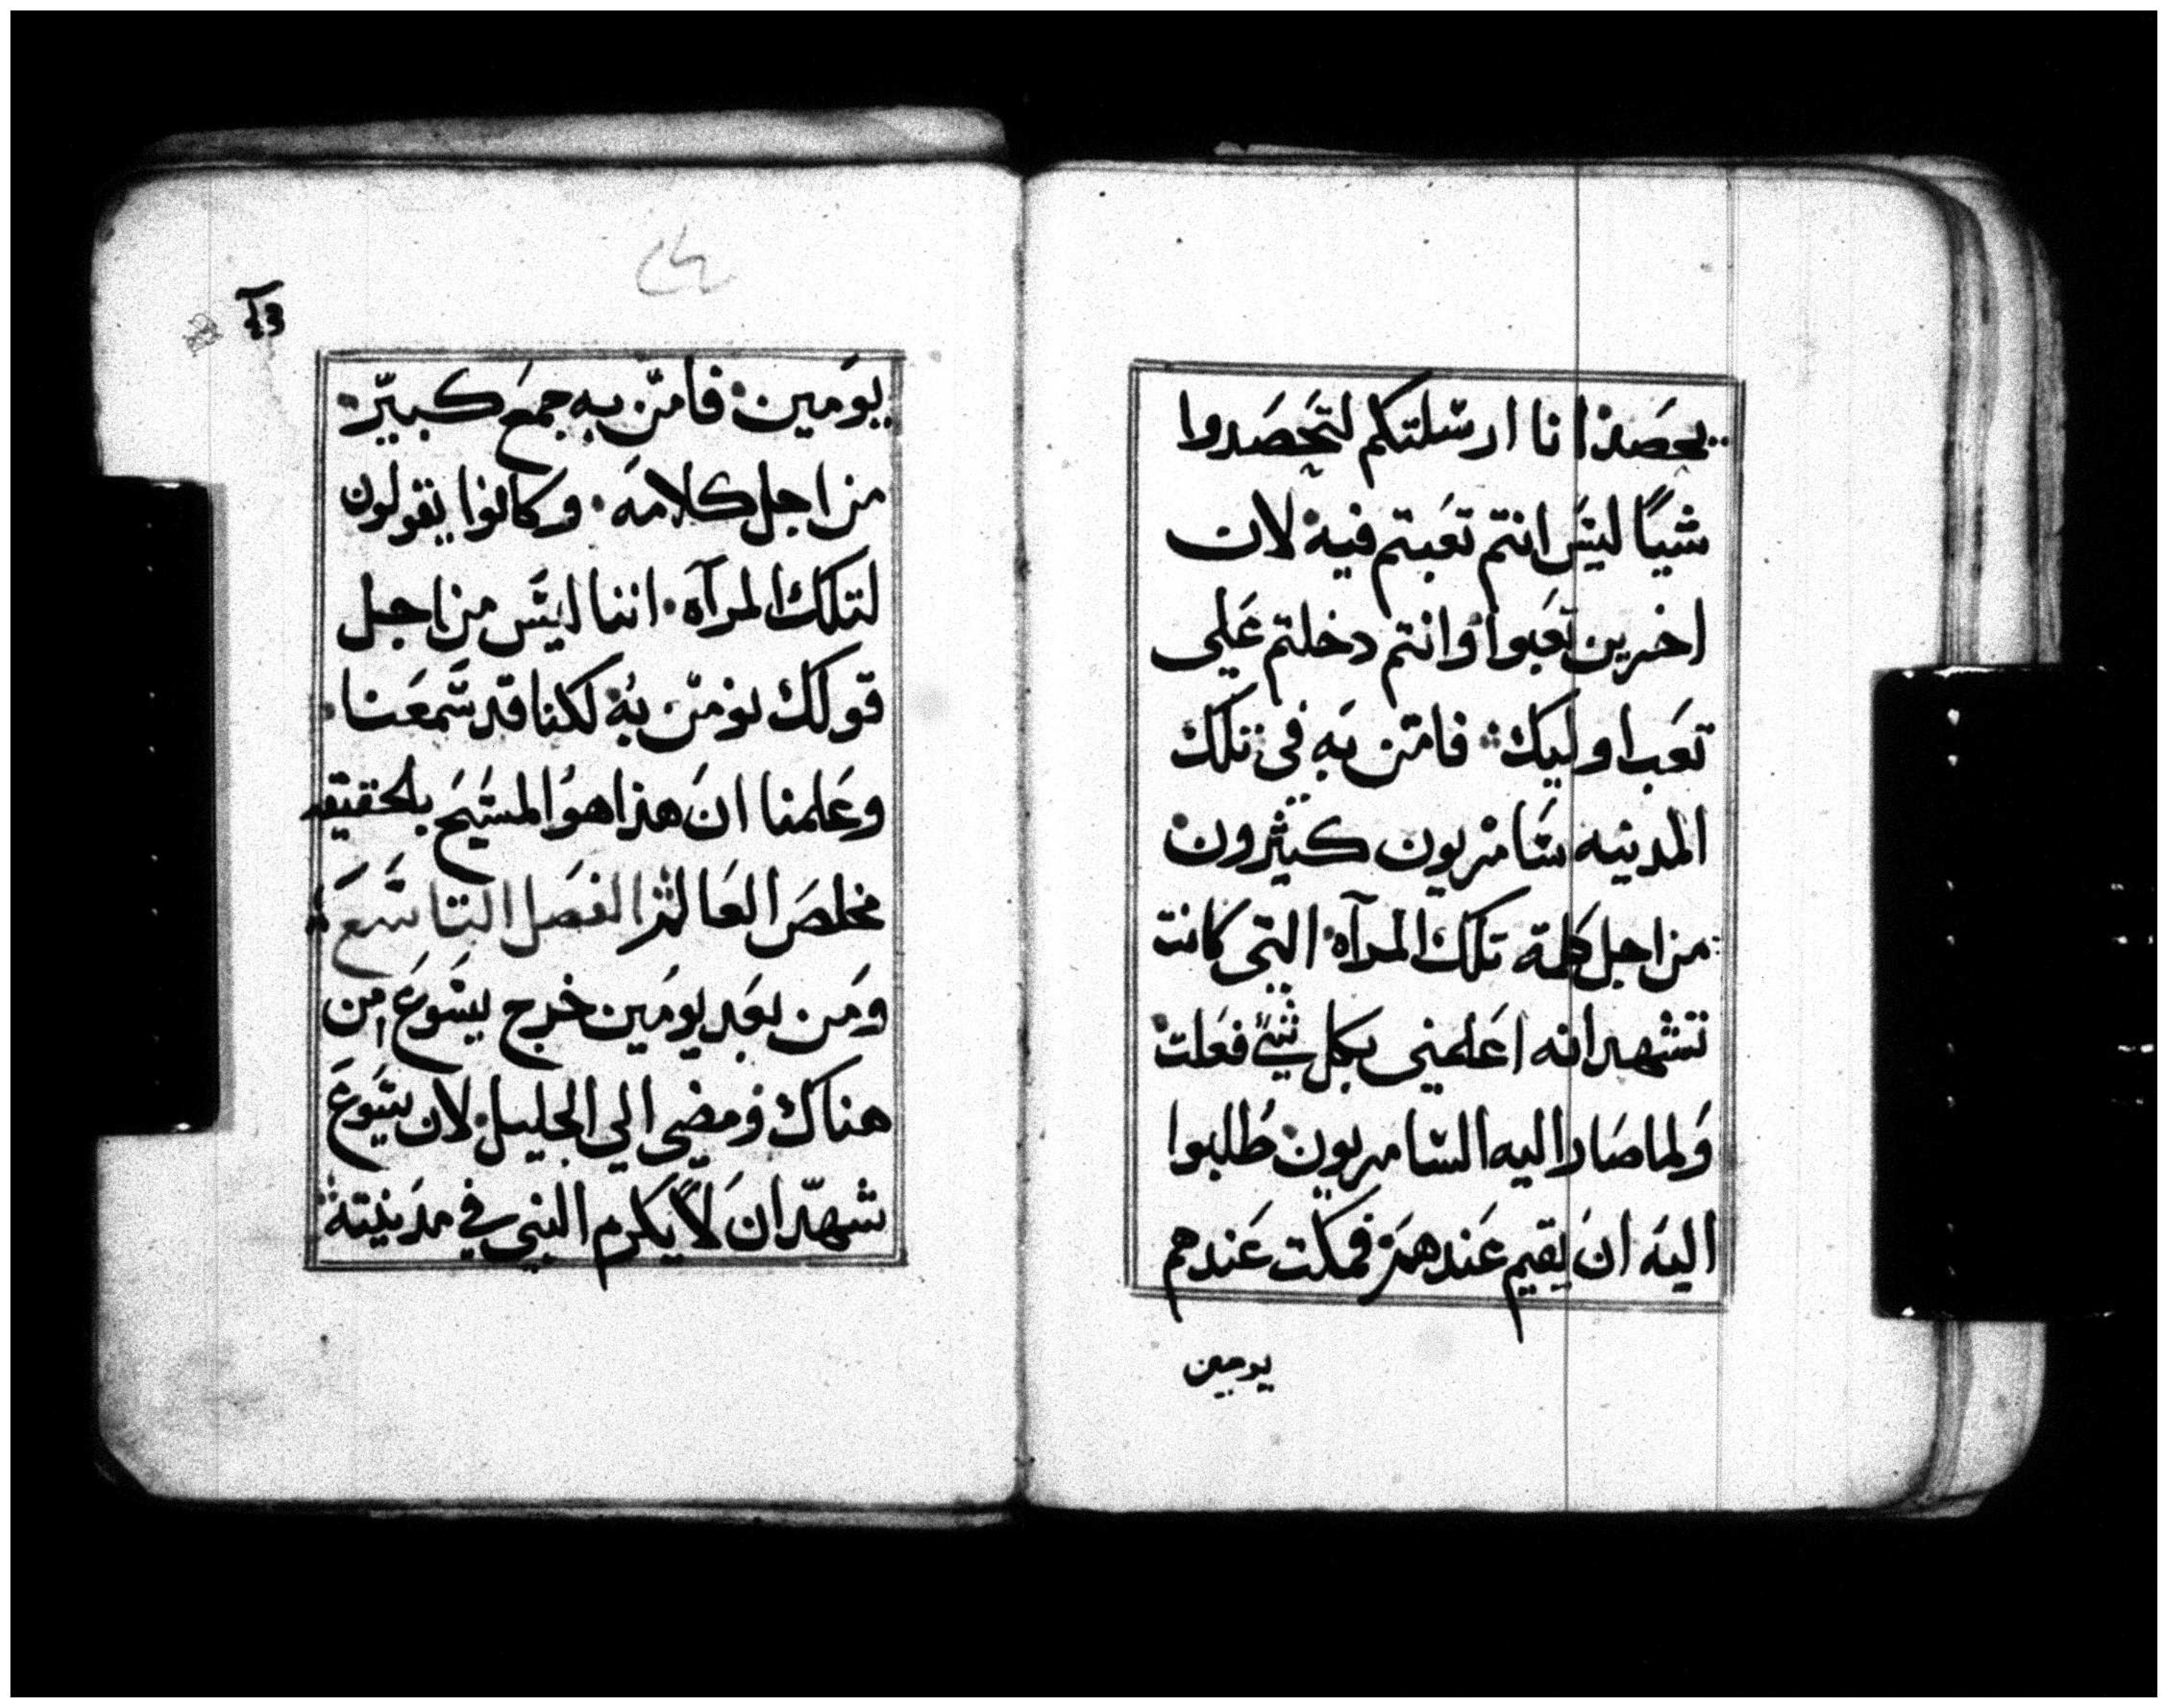 يحصد انا ارسلتكم لتحصدوا
شيًا ليس انتم تعبتم فيه لان
اخرين تعبوا وانتم دخلتم علي
تعب اوليك فامن به في تلك
المدينه سامريون كثيرون
من اجل كلمة تلك المرآه التي كانت
تشهد انه اعلمني بكل شي فعلت
ولما صار اليه السامريون طلبوا
اليه ان يقيم عندهم فمكت عندهم
يومين
يومين فامن به جمع كبير
من اجل كلامه وكانوا يقولون
لتلك المرآه اننا ليس من اجل
قولك نومن به لكنا قد سمعنا
وعلمنا ان هذا هو المسيح بلحقيقه
مخلص العالم الفصل التاسع
ومن بعد يومين خرج يسوع من
هناك ومضي الي الجليل لان يسوع
شهد ان لا يكرم النبي في مدينته